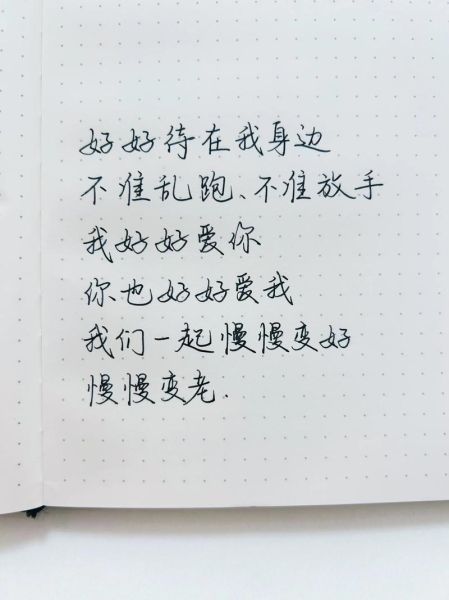 好好待在我身边
不准乱跑、不准放手
我好好爱你
你也好好爱我
我们一起慢慢变好
慢慢变老.